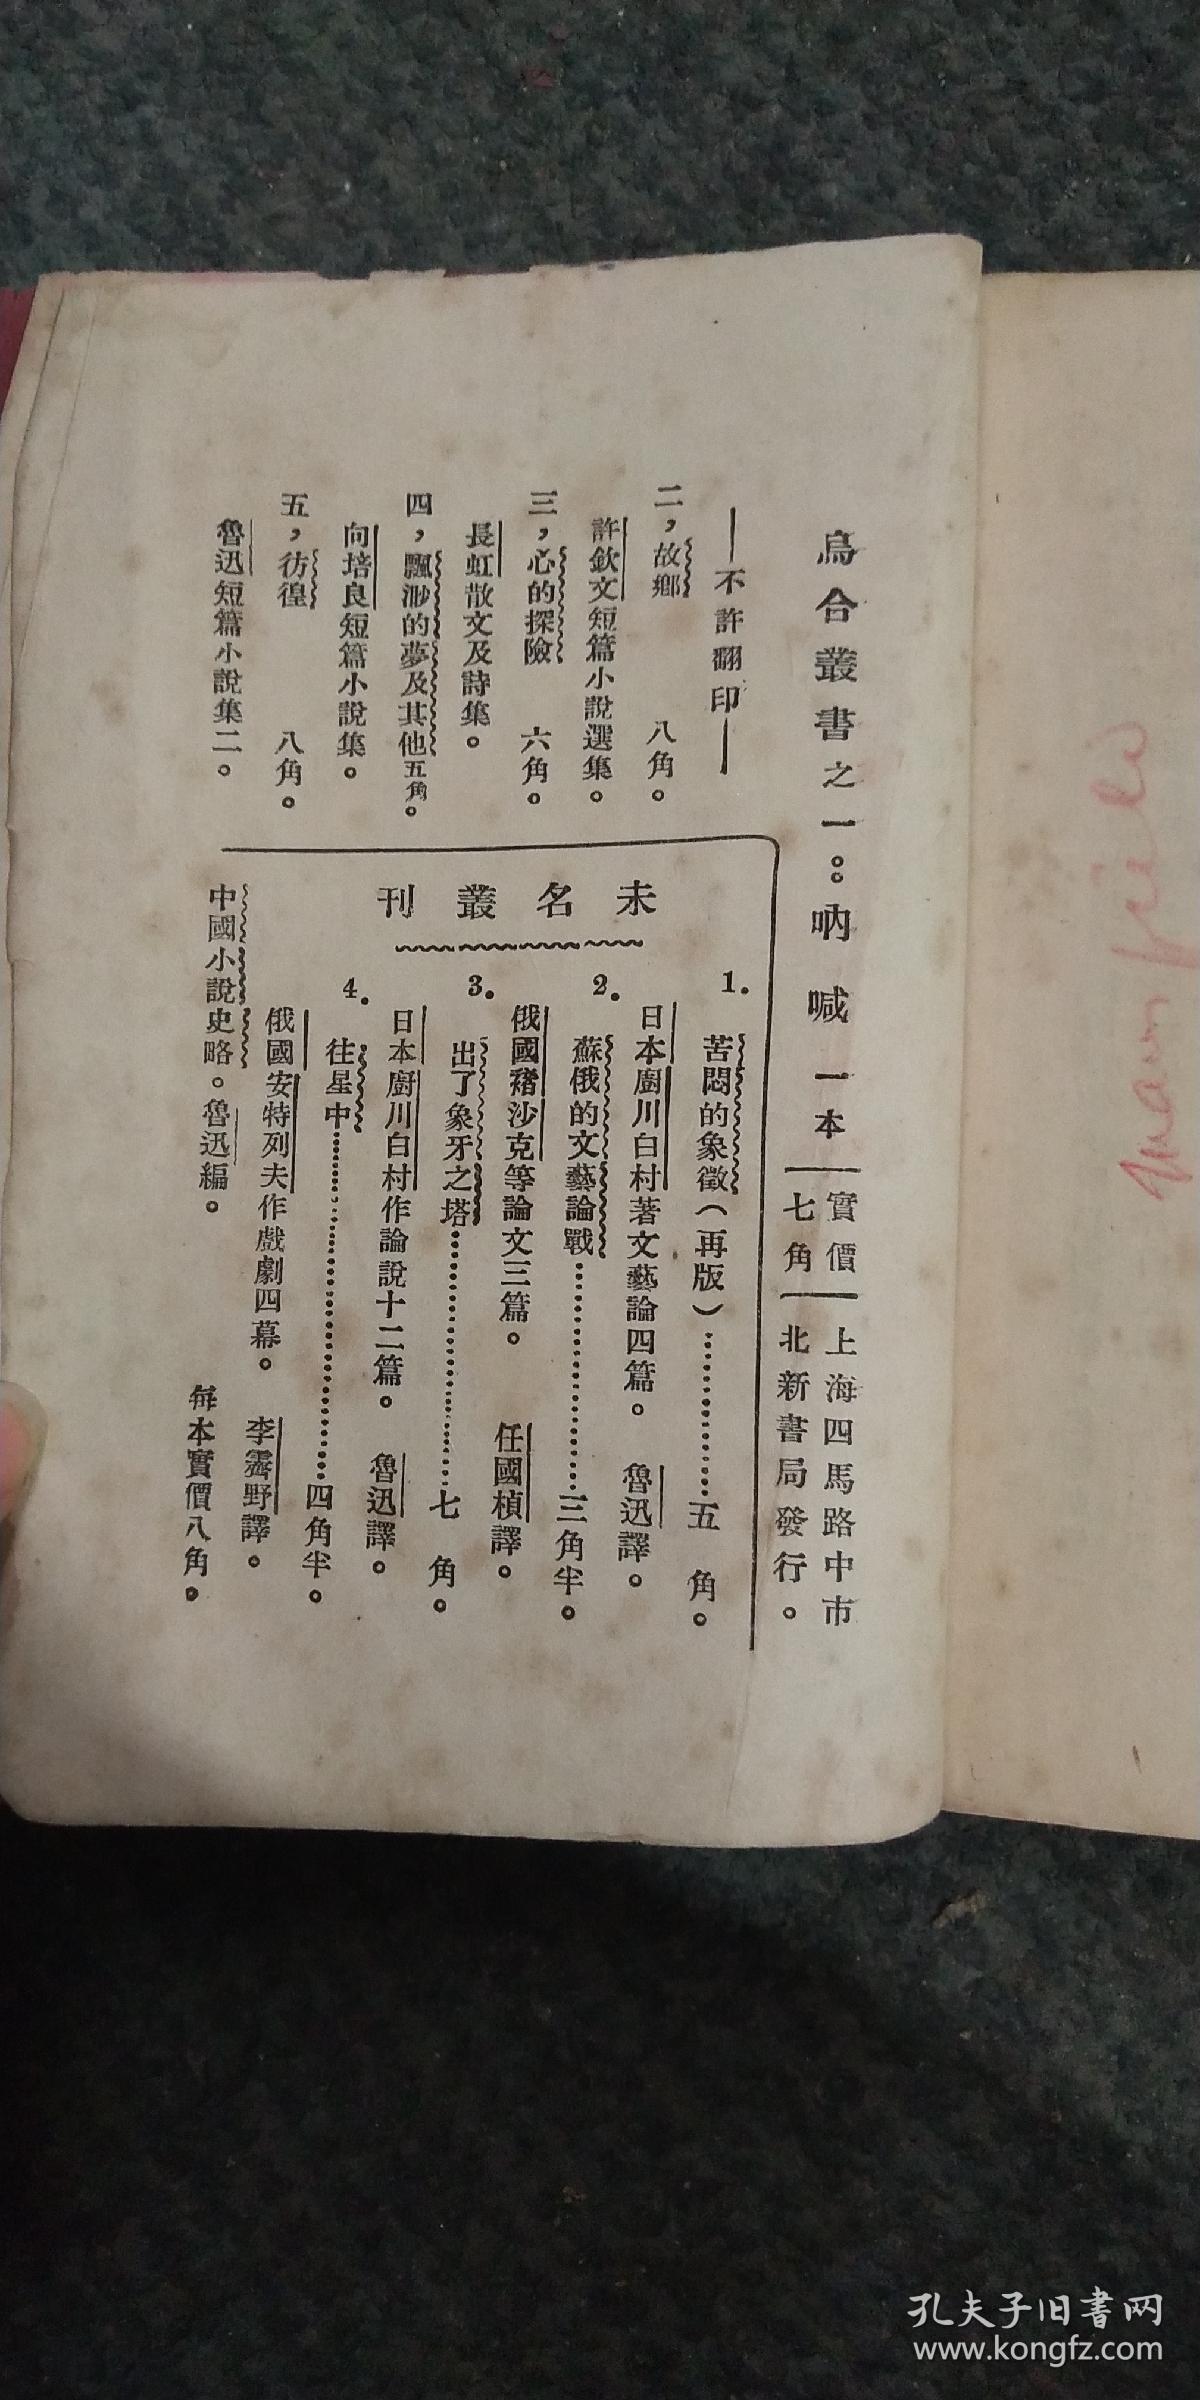 烏合叢書之一：吶喊 一本
實價七角
上海四馬路中市
北新書局發行。
——不許翻印——
二，故鄉 八角。
許欽文短篇小說選集。
三，心的探險 六角。
長虹散文及詩集。
四，飄渺的夢及其他 五角。
向培良短篇小說集。
五，彷徨 八角。
魯迅短篇小說集二。
未名叢刊
1. 苦悶的象徵（再版）…………五角。
日本廚川白村著文藝論四篇。 魯迅譯。
2. 蘇俄的文藝論戰…………三角半。
俄國褚沙克等論文三篇。 任國楨譯。
3. 出了象牙之塔…………七角。
日本廚川白村作論說十二篇。 魯迅譯。
4. 往星中…………四角半。
俄國安特列夫作戲劇四幕。 李霽野譯。
中國小說史略。魯迅編。 每本實價八角。
孔夫子旧书网
www.kongfz.com